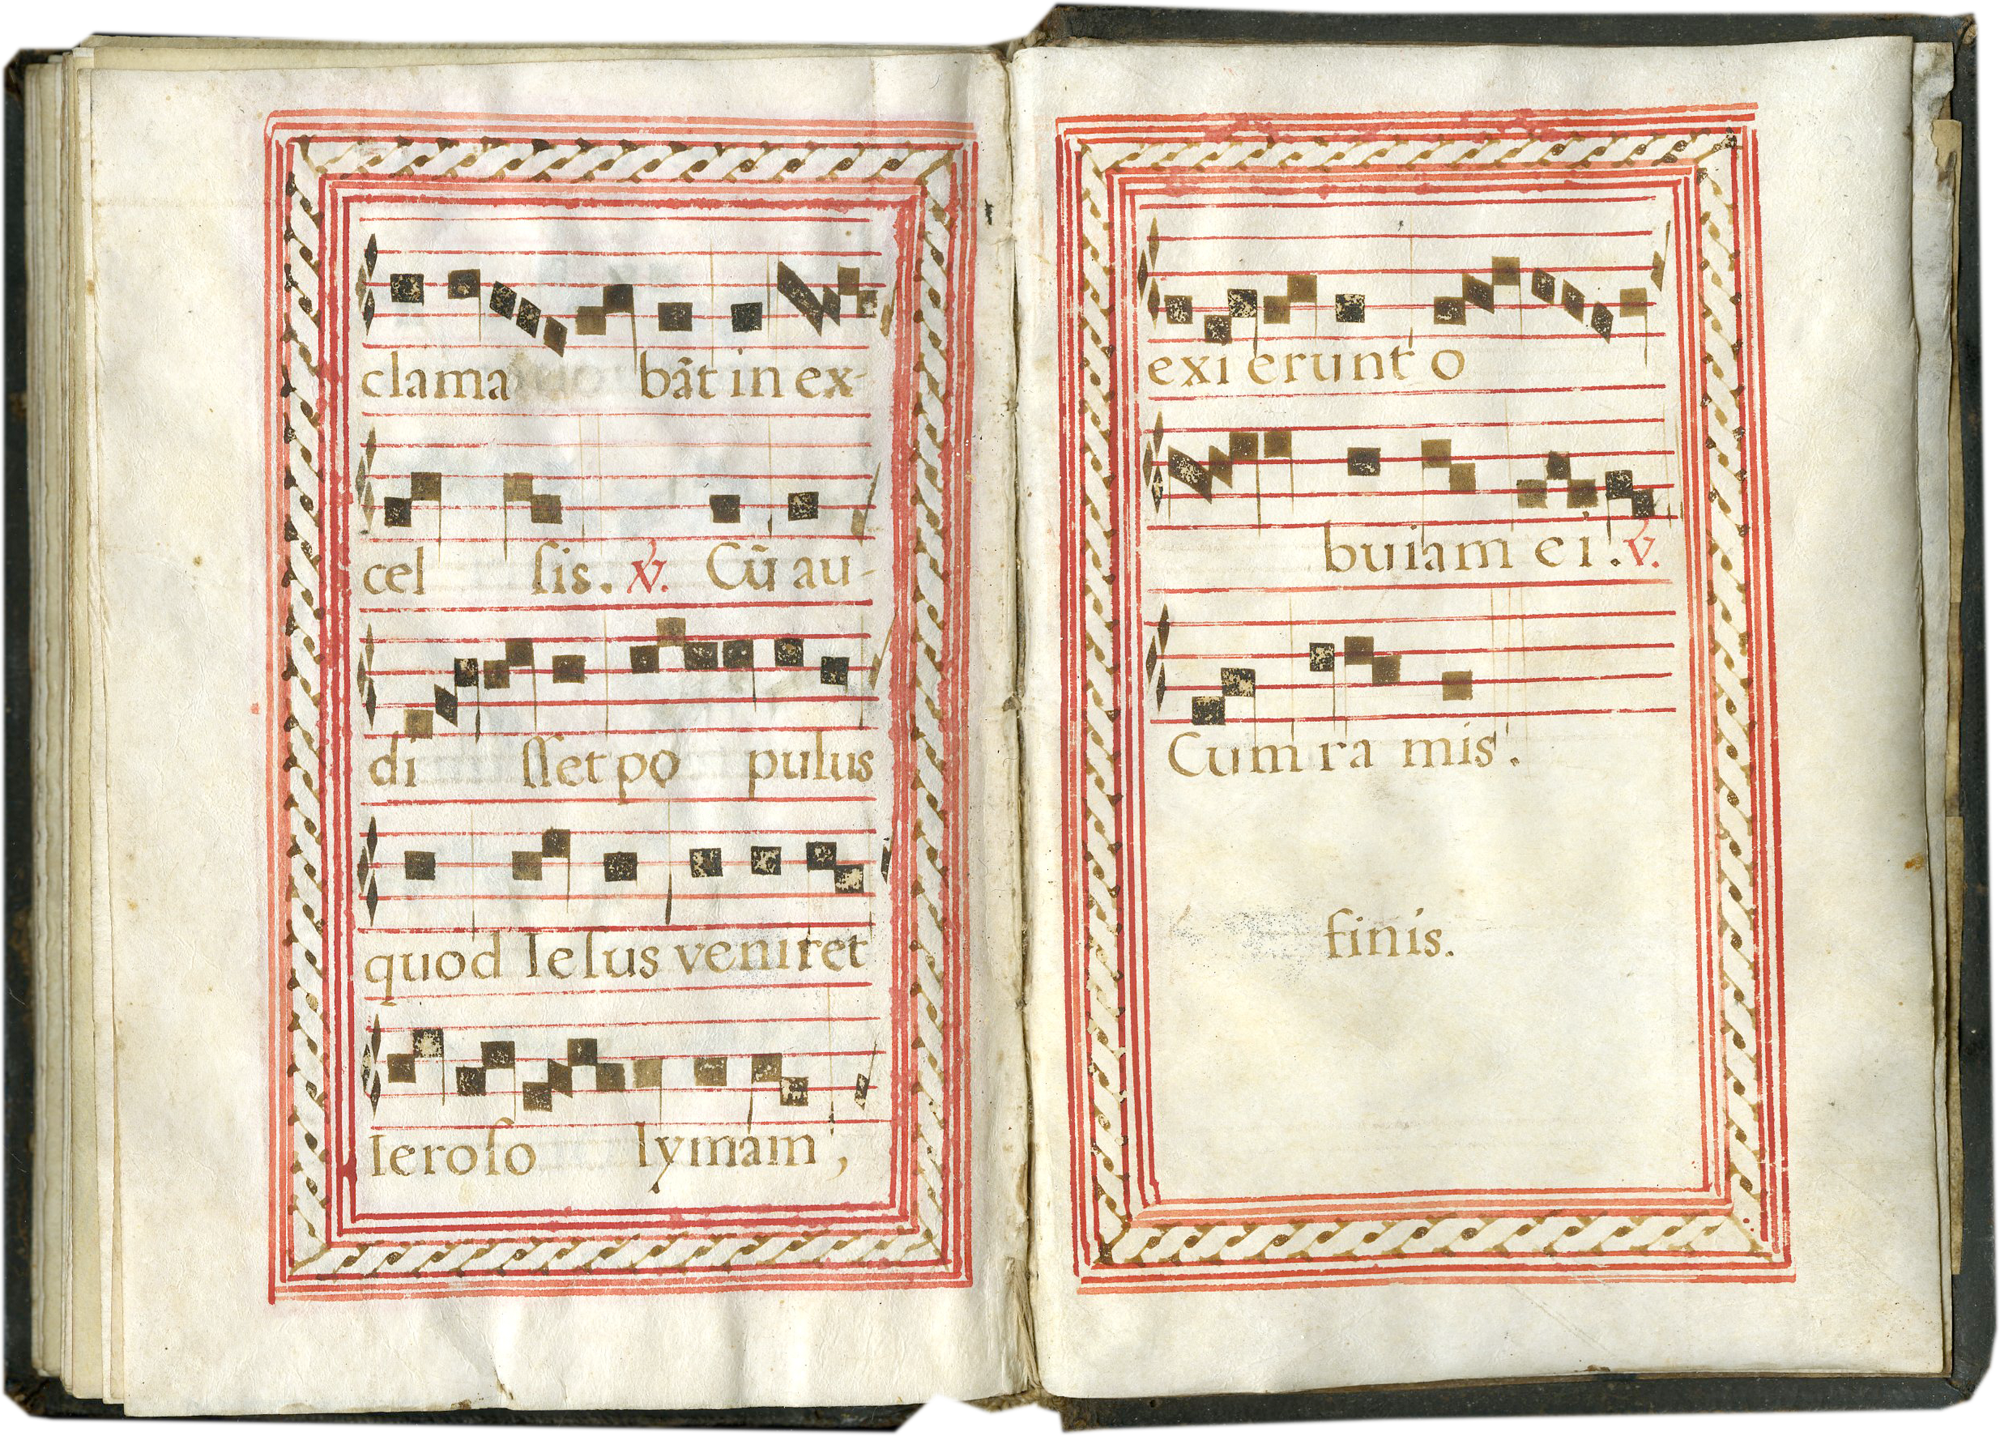 clama bāt in ex-
cel ſis. ℣. Cũ au-
di ſſet po pulus
quod Ieſus veniret
Ieroſo lymam,
exi erunt o
buiam ei. ℣.
Cum ra mis.
finis.